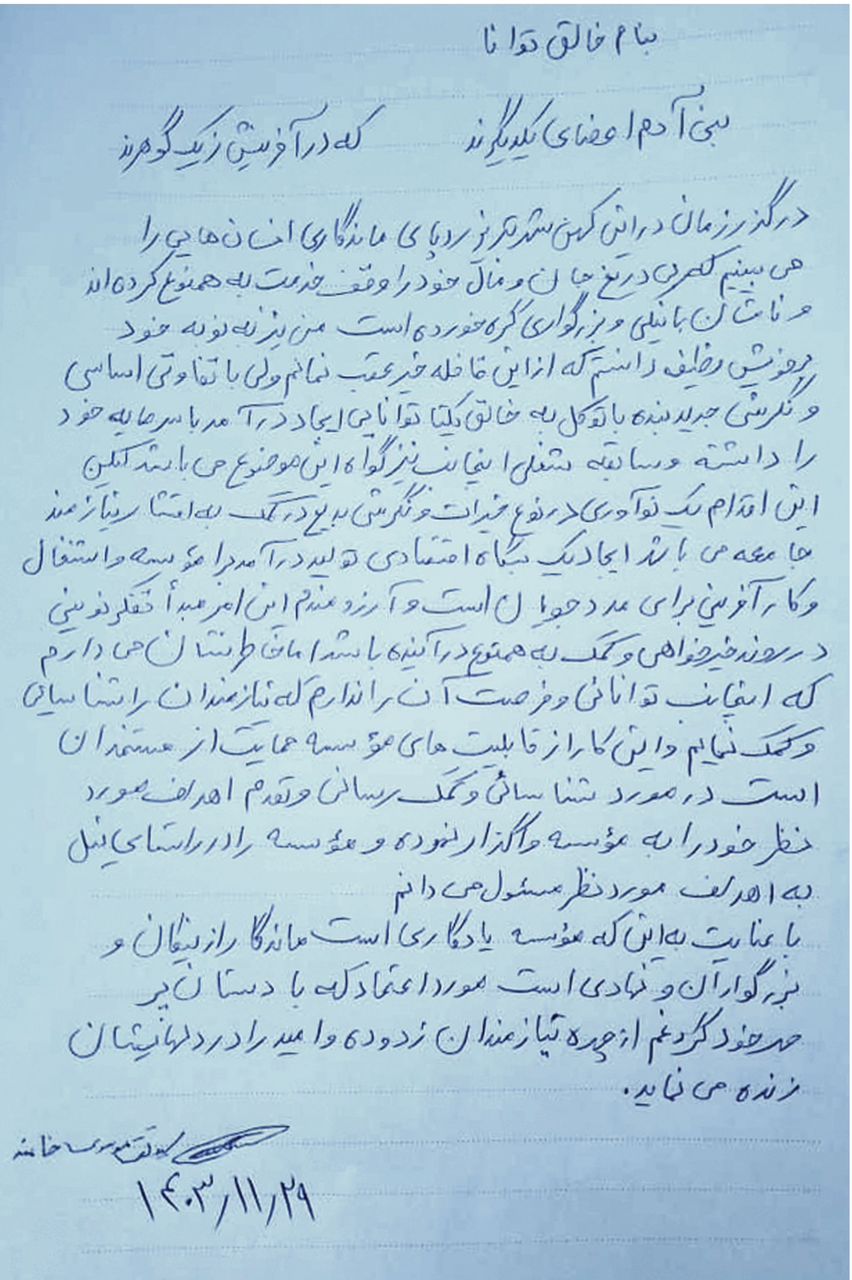 بنام خالق توانا
بنی آدم اعضای یکدیگرند که در آفرینش ز یک گوهرند
در گذر زمان در این کهن شهر تبریز رد پای ماندگاری انسان هایی را
می بینیم که بی دریغ جان و مال خود را وقف خدمت به همنوع کرده اند
و نامشان با نیکی و بزرگواری گره خورده است من نیز به نوبه خود
برخویش وظیف دانستم که از این قافله خیر عقب نمانم ولی با تفاوتی اساسی
و نگرشی جدید بنده با توکل به خالق یکتا توانایی ایجاد درآمد با سرمایه خود
را داشته و سابقه شغلی اینجانب نیز گواه این موضوع می باشد لیکن
این اقدام یک نوآوری در نوع خیرات و نگرشی بدیع در کمک به اقشار نیازمند
جامعه می باشد ایجاد یک بنگاه اقتصادی تولید درآمد برا مؤسسه و اشتغال
و کارآفرینی برای مددجویان است و آرزومندم این امر مبدأ تفکر نوینی
در روند خیرخواهی و کمک به همنوع در آینده باشد اما خاطرنشان می دارم
که اینجانب توانائی و فرصت آن را ندارم که نیازمندان را شناسائی
و کمک نمایم و این کار از قابلیت های مؤسسه حمایت از مستمندان
است در مورد شناسائی و کمک رسانی و تقدم اهداف مورد
نظر خود را به مؤسسه واگذار نموده و مؤسسه را در راستای نیل
به اهداف مورد نظر مسئول می دانم
با عنایت به این که مؤسسه یادگاری است ماندگار از نیکان و
بزرگواران و نهادی است مورد اعتماد که با دستان پر
مهر خود گرد غم از چهره نیازمندان زدوده و امید را در دلهایشان
زنده می نماید.
۱۴۰۳/۱۱/۲۹